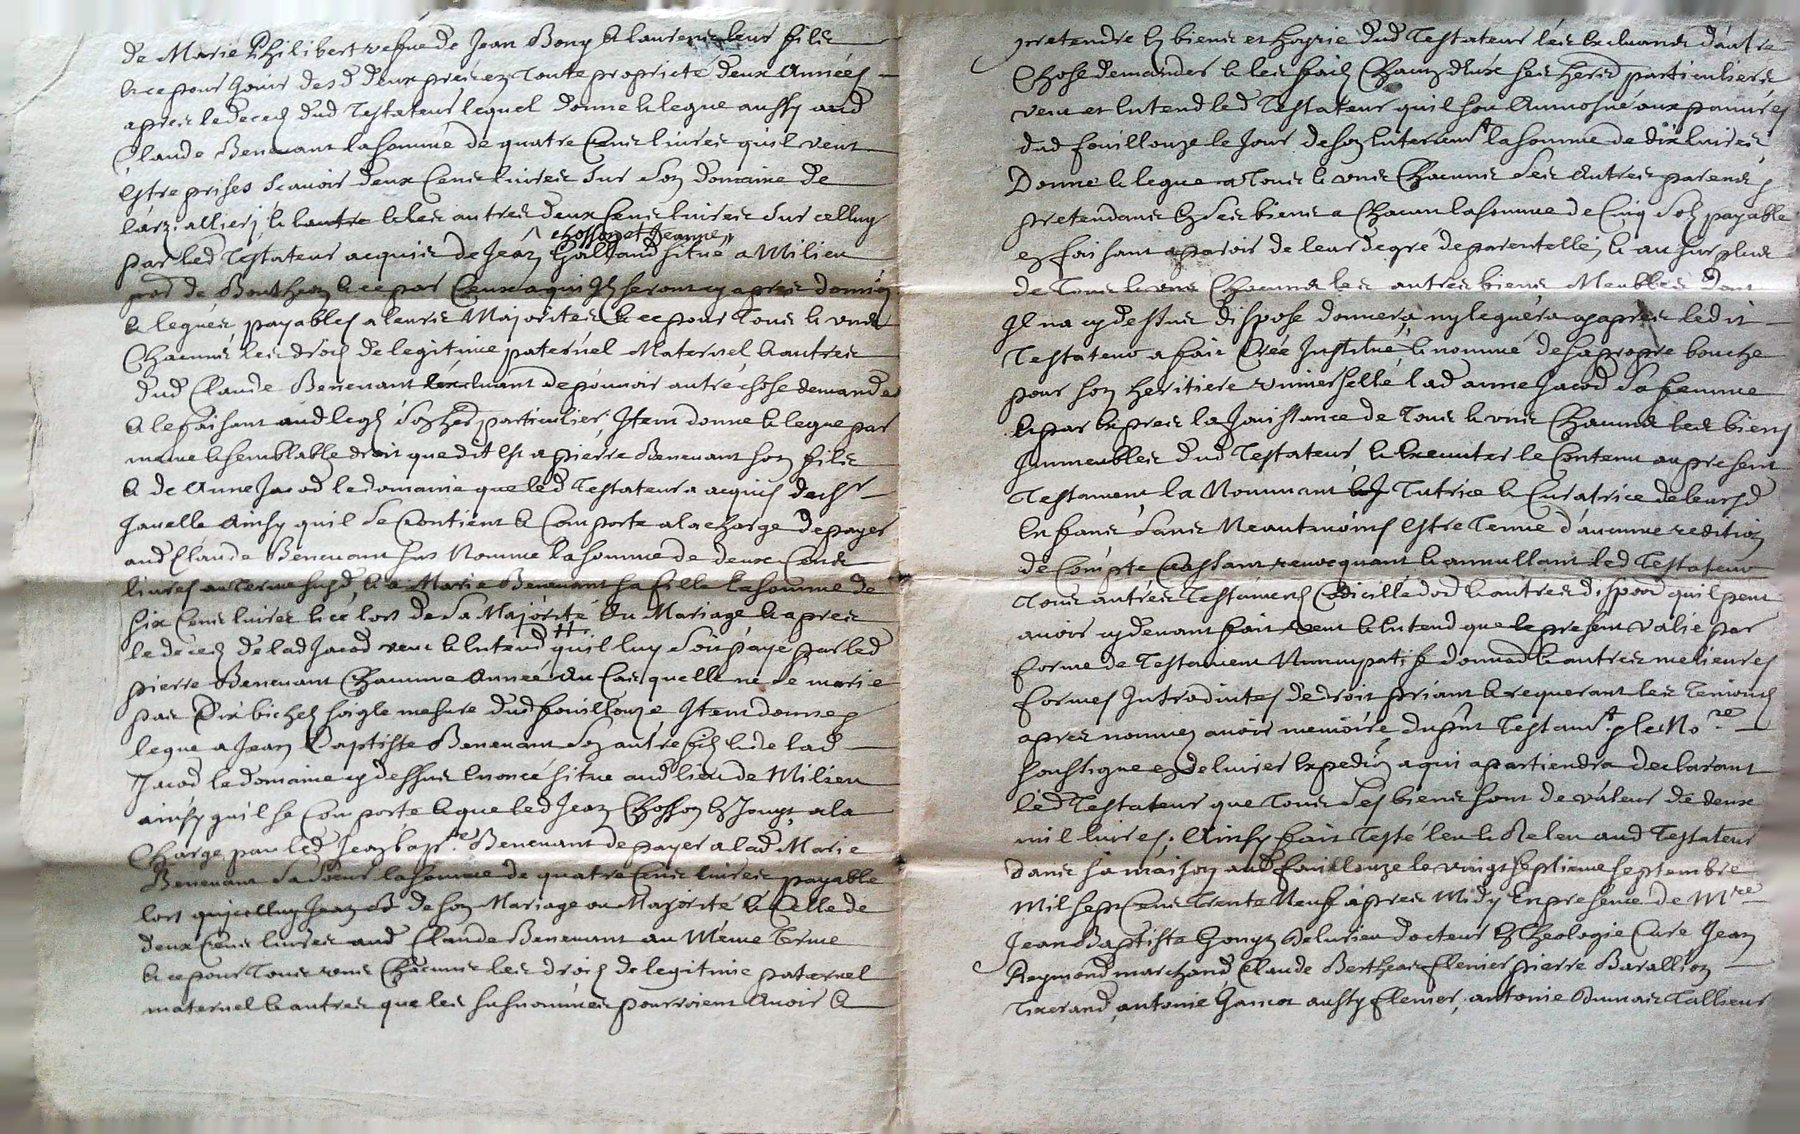 de Marie Philibert vefue de Jean Bony & laurens leur filz
& ce pour jouir desd deux prés en toute propriete deux Années
apres le deces dud Testateur lequel donne & legue aussy aud
Claude Beneuant la somme de quatre Cens liures quil veut
estre prises scauoir deux Cens liures sur son domaine de
& lautre & les autres deux Cens liures sur celluy
chosson et Jeanne
par led Testateur acquis de Jean Galland situé a Milieu
de Boutheon & ce par Ceux a qui Ils seront cy apres donnés
& legués, payables a leurs Majorites & ce pour Tous & uns
Chacuns les droits de legitime paternel Maternel & autres
dud Claude Beneuant lexcluant de pouuoir autre chose demander
& le faisant aud legs son her particulier, Item donne & legue par
meme & semblable droit que dit est a pierre Beneuant son filz
& de Anne Jacod le domaine que led Testateur a acquis de
Jauelle Ainsy quil se Contient & Comporte a la charge de payer
aud Claude Beneuant sus Nommé la somme de deux Cens
liures au terme susd, & a Marie Beneuant sa fille la somme de
six Cens liures & ce lors de sa Majorité ou Mariage & apres
le deces de lad Jacod veut & entend quil luy soit payé par led
pierre Beneuant Chacunne Année au Cas quelle ne se marie
pas Dix bichets soigle mesure dud fouillouze Item donne &
legue a Jean Baptiste Beneuant son autre filz & de lad
Jacod le domaine cy dessus Enoncé situe aud lieu de Milieu
ainsy quil se Comporte & que led Jean Chosson En Jouyt, a la
Charge par led Jean bapt.te Beneuant de payer a lad Marie
Beneuant sa soeur la somme de quatre Cens liures payable
lors de son Mariage ou Majorité & Celle de
deux Cens liures aud Claude Beneuant au Meme terme
& ce pour Tous uns Chacuns les droits de legitime paternel
maternel & autres que les susnommés pourroient Auoir &
pretendre Es biens et hoyrie dud Testateur les Excluants dautre
Chose demander & les fait Chacun deux ses hers particuliers
veut et Entend led Testateur quil soit Aumosné aux pauures
dud fouillouze le Jour de son Enterremt la somme de dix liures,
Donne & legue a Tous & uns Chacuns ses Autres parens
pretendans En ses biens a Chacun la somme de Cinq Sols payable
en faisant aparoir de leur degré de parentelle, & au surplus
de Tous & uns Chacuns les autres biens Meubles dont
Il na cy dessus disposé donnera, ny leguera cy apres ledit
Testateur a fait Créé Institué & nommé de sa propre bouche
pour son heritiere uniuerselle lad anne Jacod sa femme
& par Expres la Jouissance de Tous & uns Chacuns les biens
Immeubles dud Testateur, & Executer le Contenu au present
Testament la Nommant Tutrice & Curatrice de leurs
Enfans sans Neantmoins Estre Tenue daucunne redition
de Compte Cassant reuoquant & annullant led Testateur
Tous autres Testamens Codicille & autres quil peut
auoir cy deuant fait veut & Entend que le present valie par
forme de Testament Nuncupatif & autres melieures
formes Introduites de droit priant & requerant les Temoins
apres nommez auoir memoire du pnt Testamt & le No.re
soussigne en deliurer Expedon a qui apartiendra declarant
led Testateur que Tous ses biens sont de valeur de deux
mil liures. Ainsy fait Testé leu & Releu aud Testateur
dans sa maison aud fouillouze le vingt septieme septembre
Mil sept Cens Trente Neuf apres Midy En presence de Mre
Jean Baptiste docteur En Theologie Cure Jean
Reymond marchand Claude pierre Barallion
Tixerand, antoine aussy antoine Tallieur